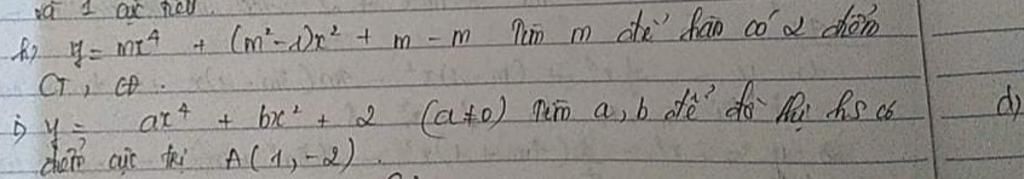 và 1 cực tiểu
h) y = mx⁴ + (m²-1)x² + m - m Tìm m để hàm có 2 điểm
CT, CĐ.
i) y = ax⁴ + bx² + 2 (a≠0) Tìm a, b để đồ thị hs có
điểm cực trị A(1,-2).
d)